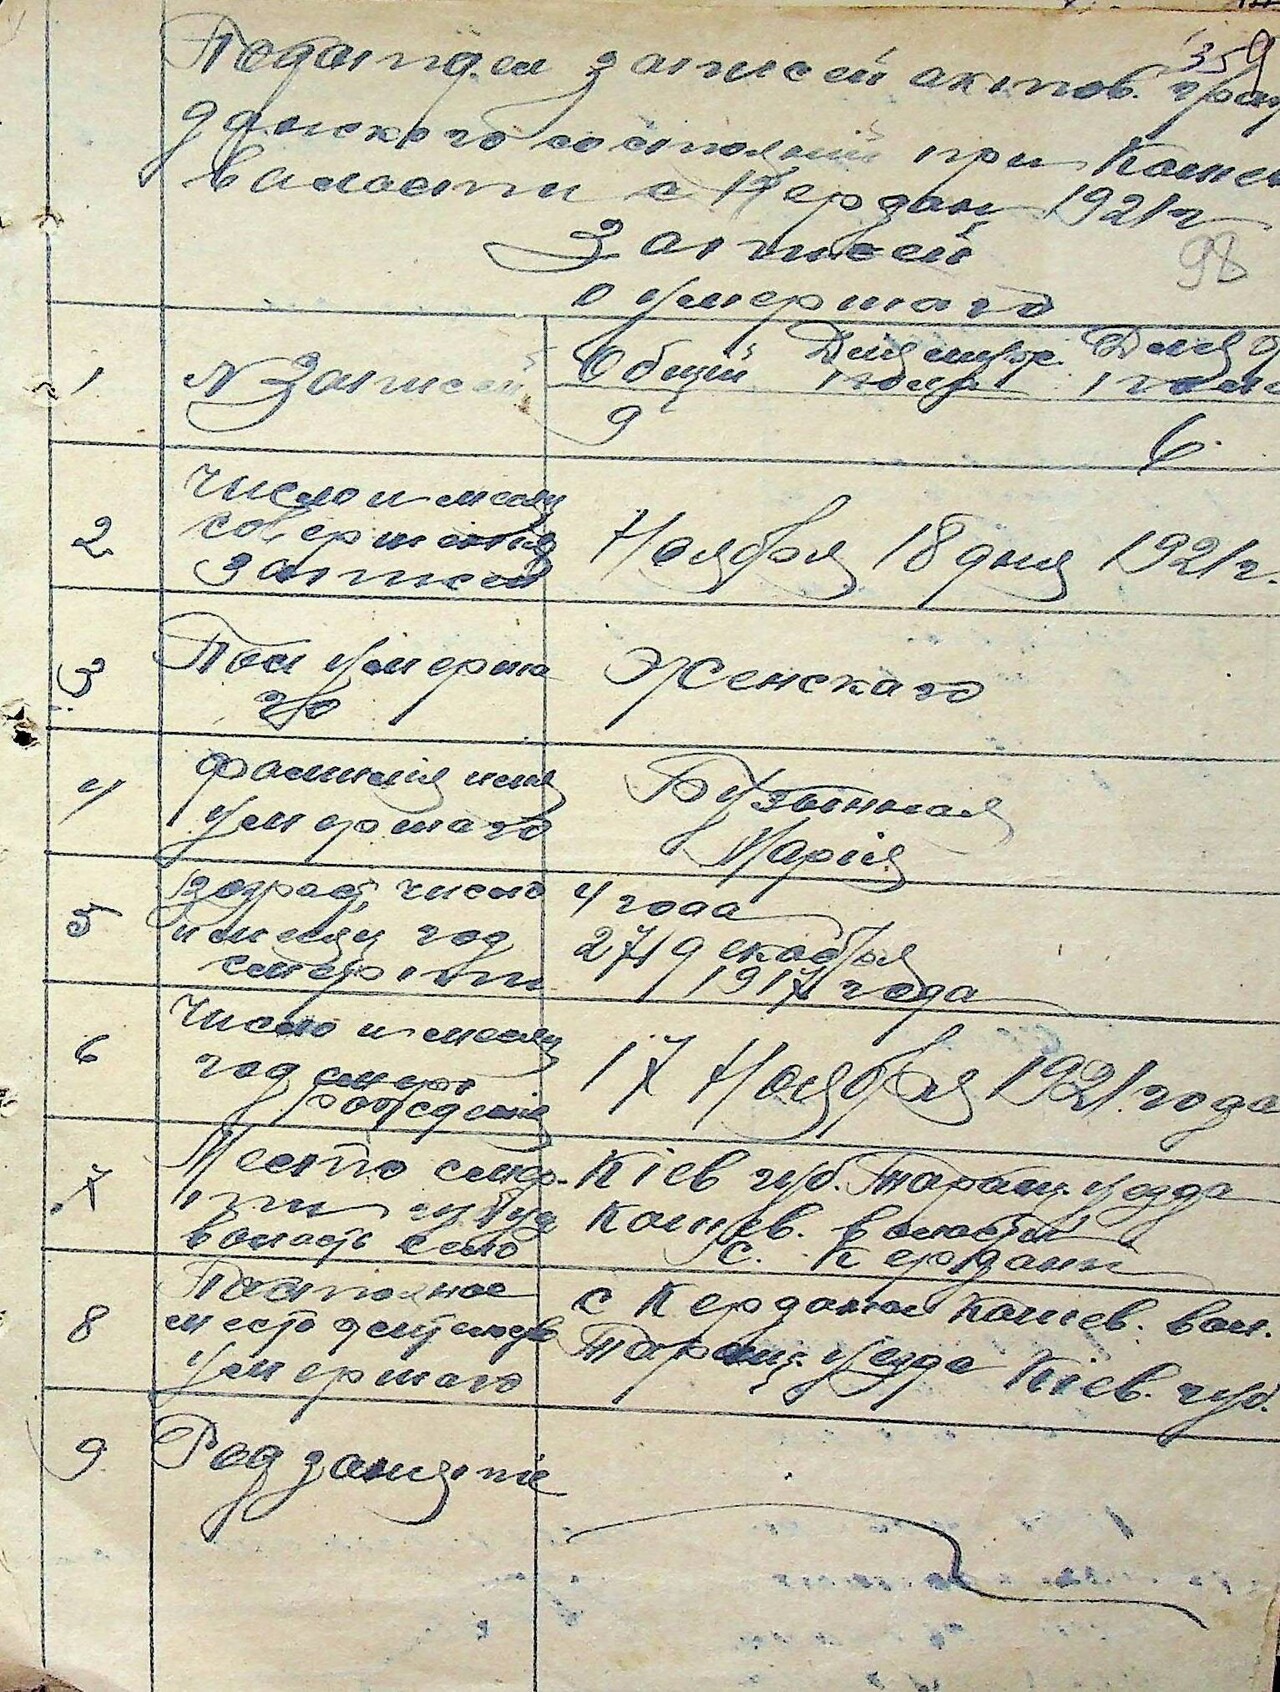 359
Подотдел записей актов. граж
данского состояния при Кошев
валости с Кердан 1921 г
98
Записей
о умершаго
1 N Записей Общий Для мужс. Для
1 пола 1 
9 6.
2 Число и месяц
совершения
Записей
Ноября 18 дня 1921 г.
3 Пол умерша
го
Женскаго
4 Фамилия имя
умершаго
Бузынная
Марія
5 возраст, число
и месяц год
смерти
4 года
27 декабря
1917 года
6 Число и месяц
год смер
рождения
17 Ноября 1921 года
7 Место смер-
ти губ уез
волость село
Кіев губ. Таращ. уезда
Кошев. волости
с. Кердани
8 Постоянное
место жительств
умершаго
с Кердана Кошев. вол.
Таращ. уезда Кіев. губ.
9 Род занятіе